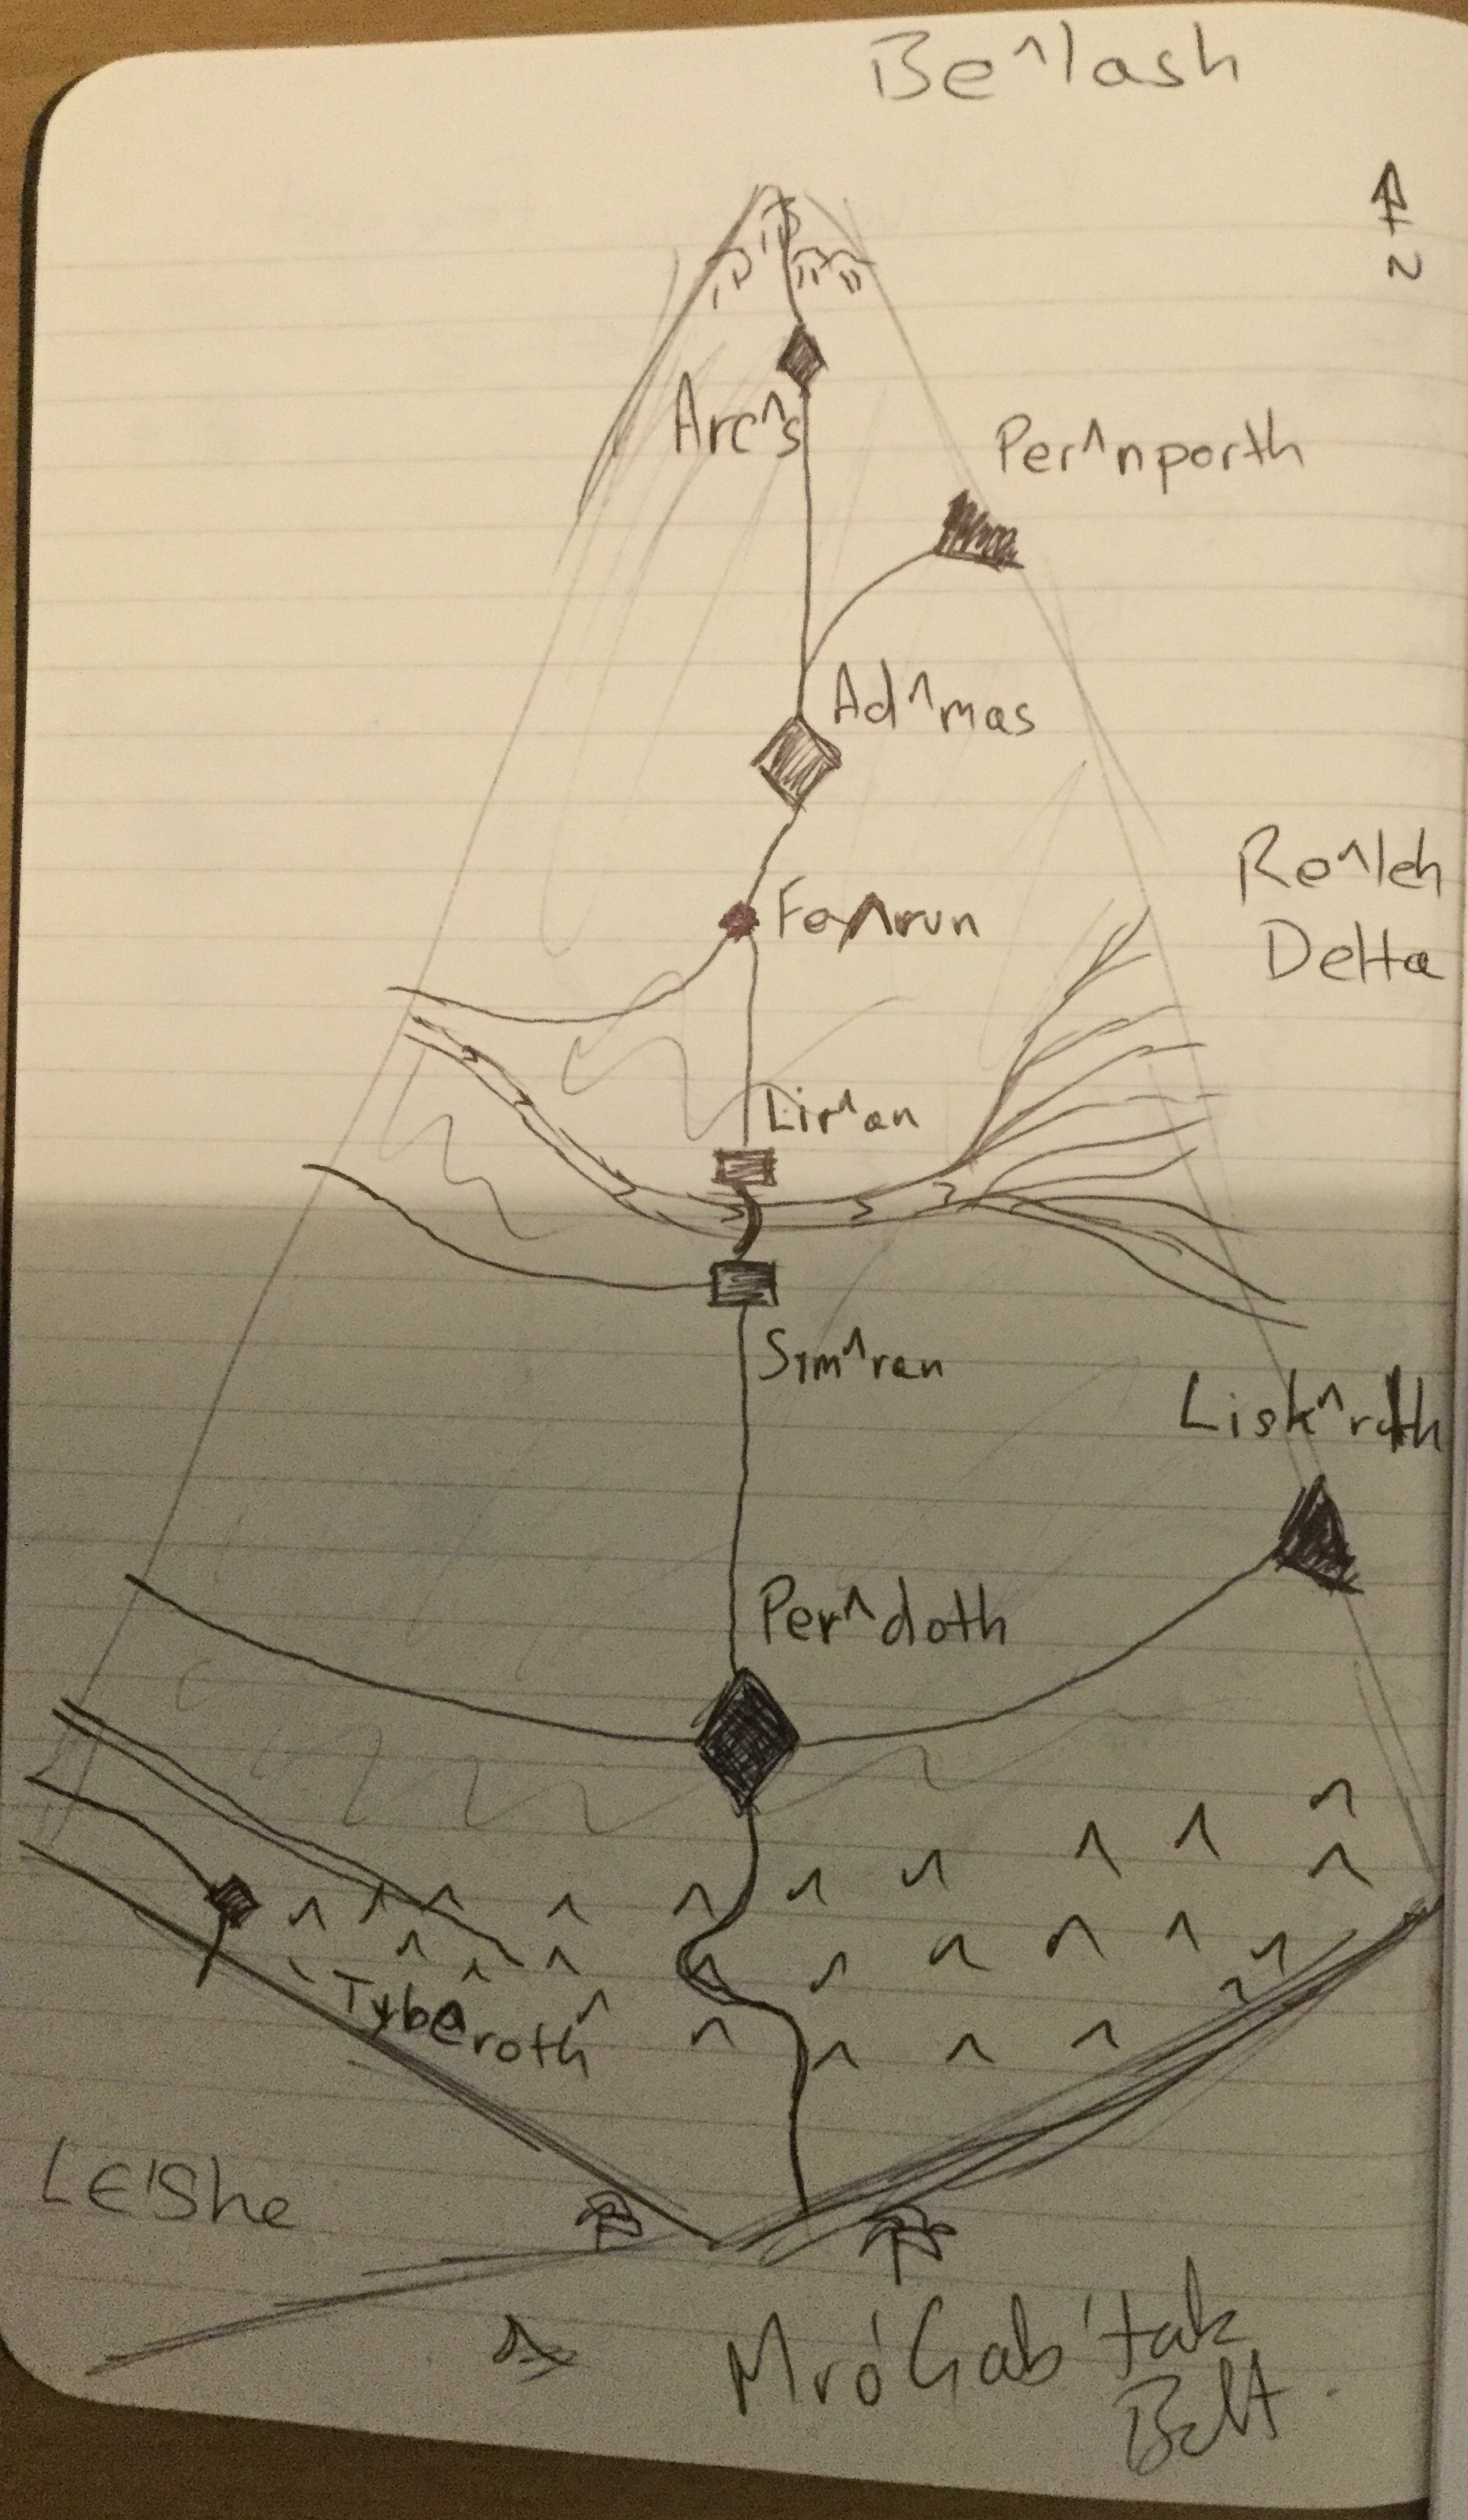 Be^lash
N
Arc^s
Per^nporth
Ad^mas
Re^leh
Delta
Fe^run
Lir^an
Sim^ren
Lisk^rath
Per^doth
Tyberoth
LE'She
Mró'Gab'tak
Belt.